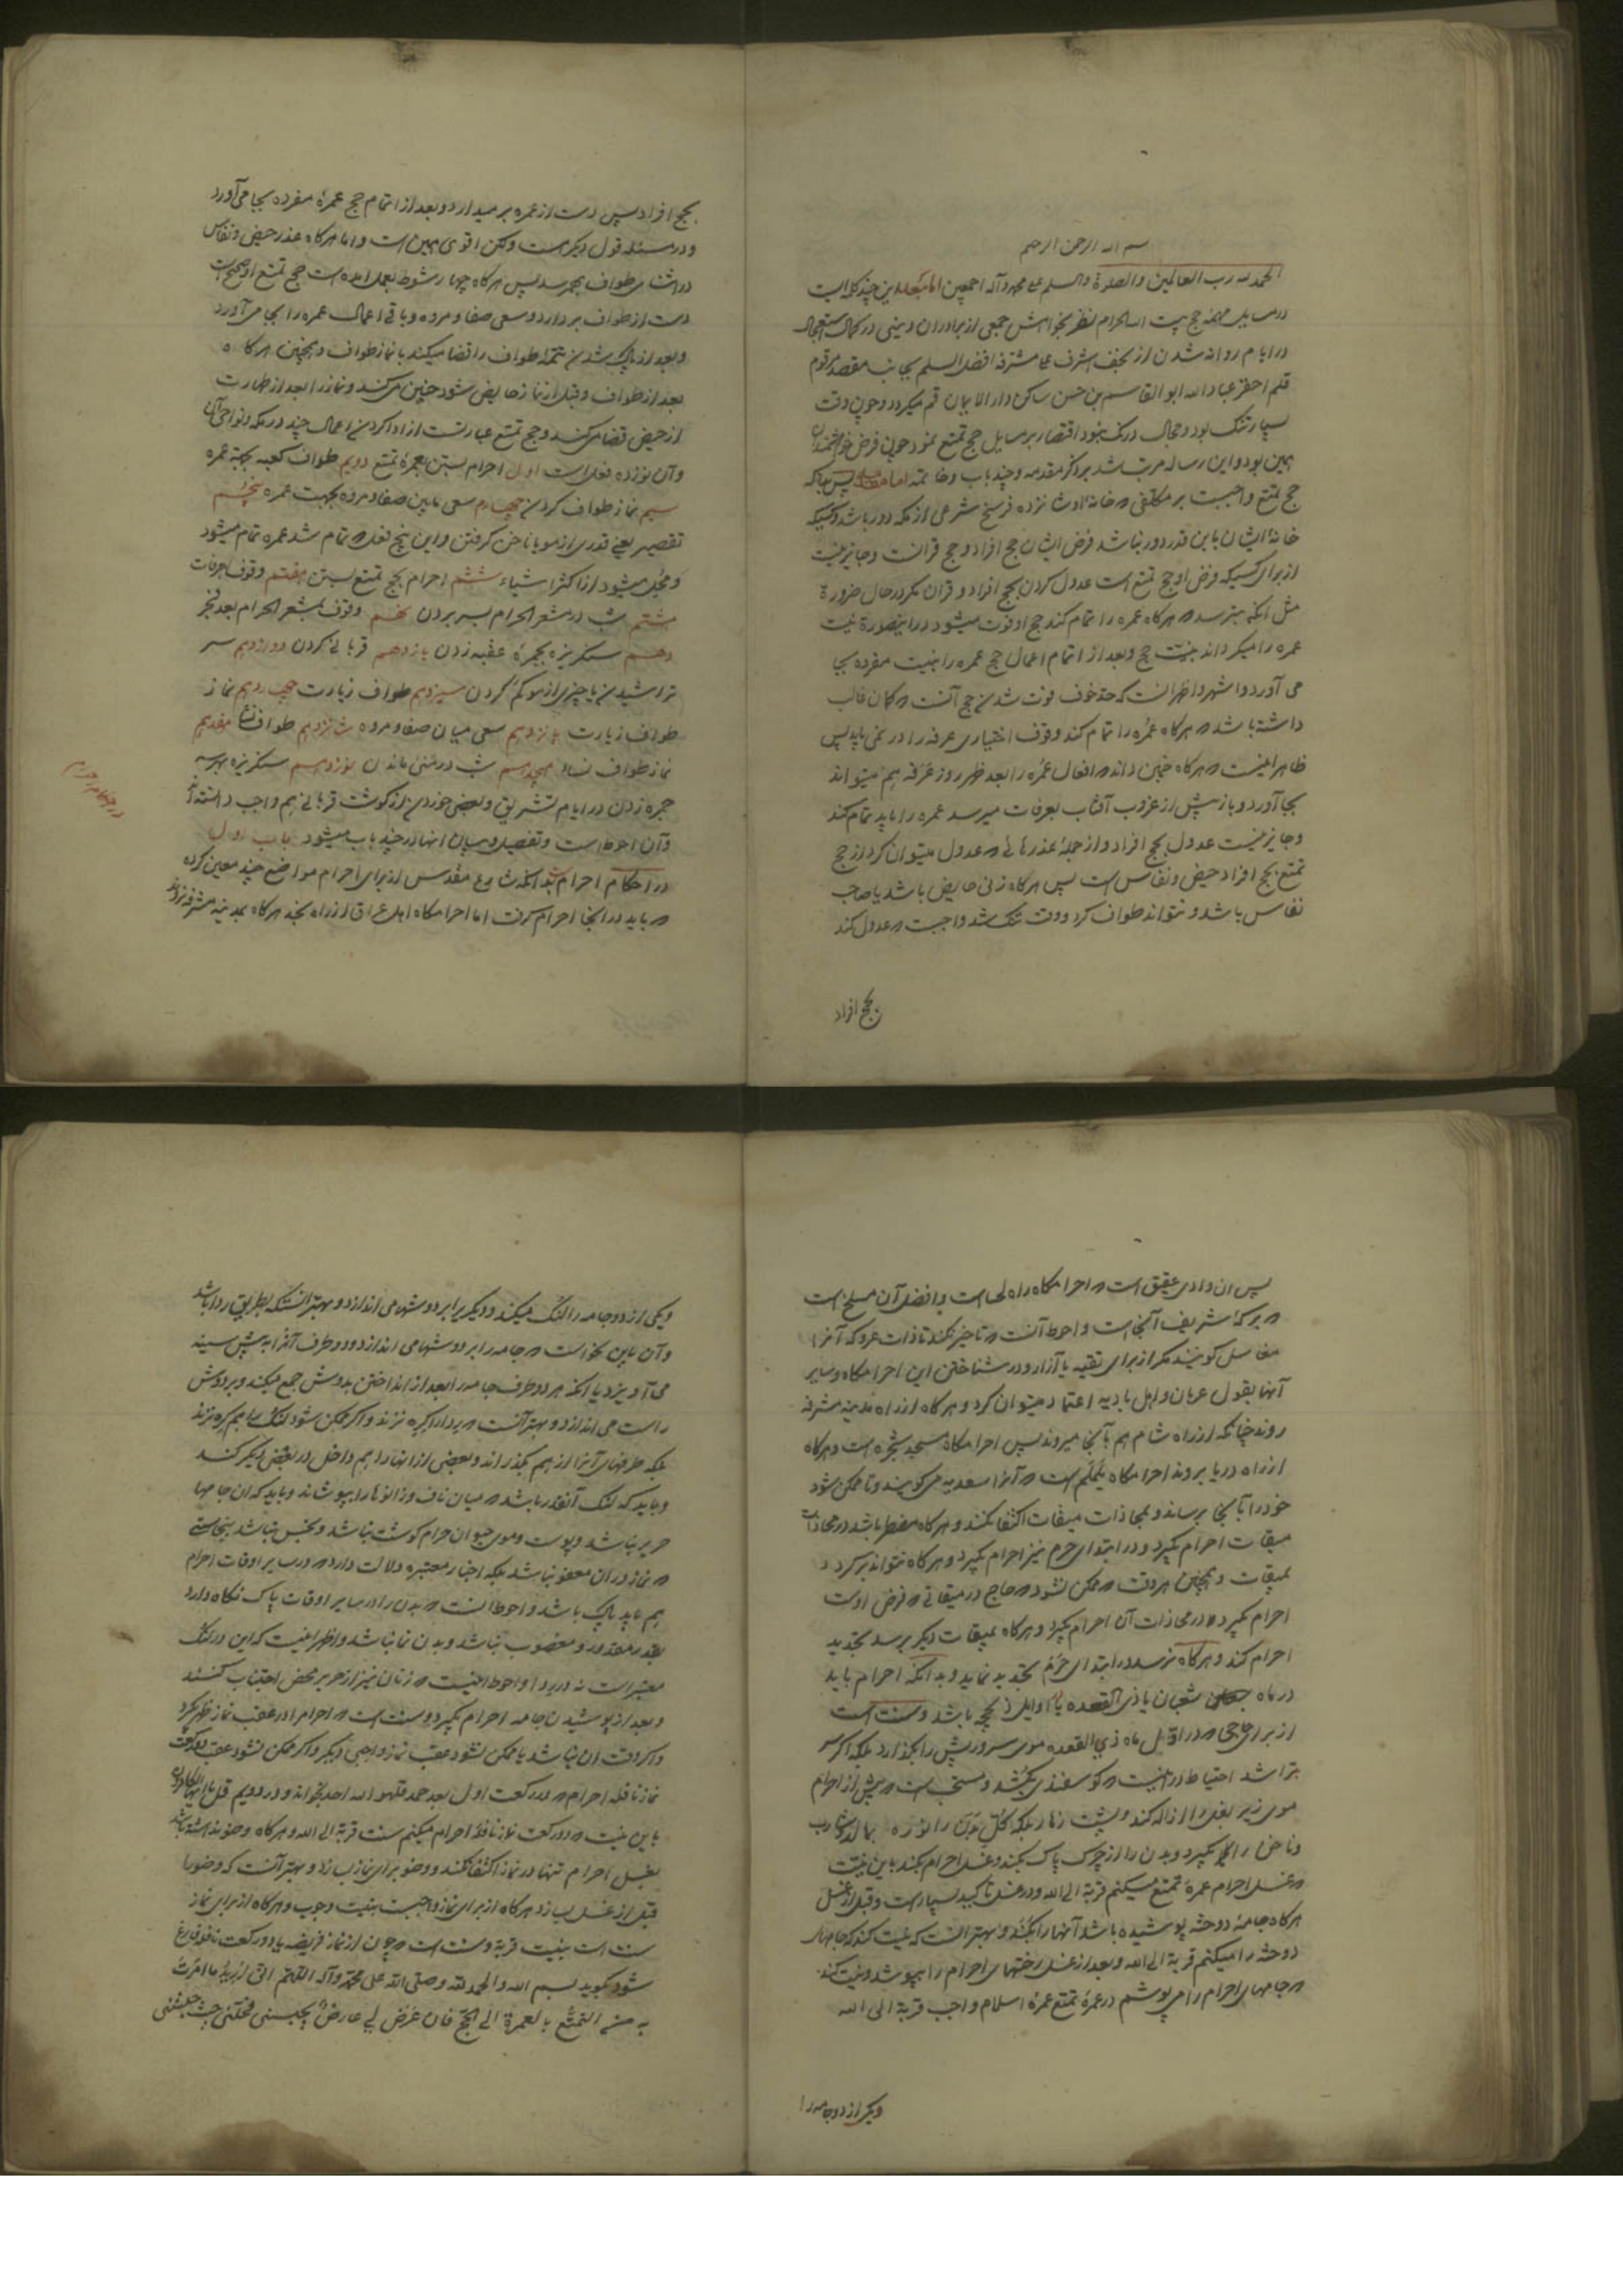 بسم الله الرحمن الرحیم
الحمد لله رب العالمین والصلوة والسلم علی محمد وآله اجمعین اما بعد این چند کلمه ایست
در مسایل مهمه حج بیت الله الحرام نظر بخواهش جمعی از برادران دینی در کمال استعجال
در ایام روانه شدن از نجف اشرف علی مشرفه افضل السلم بجانب مقصد مرقوم
قلم احقر عباد الله ابو القاسم بن حسن ساکن دار الایمان قم میکردد وچون وقت
بسیار تنک بود ومجال درنک نبود اقتصار بر مسایل حج تمتع نمود چون فرض
همین بود واین رساله مرتب شد بر ذکر مقدمه وچند باب وخاتمه اما مقدمه پس بدانکه
حج تمتع واجبست بر مکلفی که خانه او شانزده فرسخ شرعی از مکه دور باشد وکسیکه
خانه ایشان باین قدر دور نباشد فرض ایشان حج افراد وحج قرانست وجایز نیست
از برای کسیکه فرض او حج تمتع است عدول کردن بحج افراد وقران مکر در حال ضرورة
مثل انکه بترسد که هرکاه عمره را تمام کند حج او فوت میشود در اینصورة نیت
عمره را میکرداند بنیت حج وبعد از اتمام اعمال حج عمره را بنیت مفرده بجا
می آورد واشهر واظهر انست که حد خوف فوت شدن حج آنست که کمان غالب
داشته باشد که هرکاه عمره را تمام کند وقوف اختیاری عرفه را در نمی یابد پس
ظاهر اینست که هرکاه چنین داند که افعال عمره را بعد ظهر روز عرفه هم میتواند
بجا آورد وباز پیش از غروب آفتاب بعرفات میرسد عمره را باید تمام کند
وجایز نیست عدول بحج افراد واز جمله عذرهائی که عدول میتوان کرد از حج
تمتع بحج افراد حیض ونفاس است پس هرکاه زنی حایض باشد یا صاحب
نفاس باشد ونتواند طواف کرد ووقت تنک شد واجبست که عدول کند
بحج افراد
بحج افراد پس دست از عمره بر میدارد وبعد از اتمام حج عمرۀ مفرده بجا می آورد
ودر مسئله قول دیکر هست ولکن اقوی همین است واما هرکاه عذر حیض ونفاس
در اثنای طواف بهم رسد پس هرکاه چهار شوط بعمل امده است حج تمتع او صحیح است
دست از طواف بردارد وسعی صفا ومروه وباقی اعمال عمره را بجا می آورد
وبعد از پاک شدن تتمۀ طواف را قضا میکند با نماز طواف وهمچنین هرکاه
بعد از طواف وقبل از نماز حایض شود چنین میکند ونماز را بعد از طهارت
از حیض قضا میکند وحج تمتع عبارتست از ادا کردن اعمال چند در مکه ونواحی آن
وآن نوزده فعل است اول احرام بستن بعمرۀ تمتع دویم طواف کعبه بجهة عمره
سیم نماز طواف کردن چهارم سعی مابین صفا ومروه بجهت عمره پنجم
تقصیر یعنی قدری از مو یا ناخن کرفتن واین پنج فعل که تمام شد عمره تمام میشود
ومُحِل میشود از اکثر اشیاء ششم احرام بحج تمتع بستن هفتم وقوف بعرفات
هشتم شب در مشعر الحرام بسر بردن نهم وقوف بمشعر الحرام بعد فجر
دهم سنکریزه بجمرۀ عقبه زدن یازدهم قربانی کردن دوازدهم سر
تراشیدن یا چیزی از مو کم کردن سیزدهم طواف زیارت چهاردهم نماز
طواف زیارت پانزدهم سعی میان صفا ومروه شانزدهم طواف نسا هفدهم
نماز طواف نساء هیجدهم شب در منی ماندن نوزدهم سنکریزه بهر سه
جمره زدن در ایام تشریق وبعضی خوردن از کوشت قربانی هم واجب دانسته اند
وآن احوط است وتفصیل وبیان انها در چند باب میشود باب اول
در احکام احرام بدانکه شارع مقدس از برای احرام مواضع چند معین کرده
که باید در انجا احرام کرفت اما احرامکاه اهل عراق از راه نجد هرکاه بمدینه مشرفه نروند
در احکام احرام
پس ان وادی عقیق است که احرامکاه راه لحسا است وافضل آن مسلخ است
که برکۀ شریف آنجا است واحوط آنست که تاخیر نکند تا ذات عرق که آنرا
کویند مکر از برای تقیه یا آزار ودر شناختن این احرامکاه وسایر
آنها بقول عربان واهل بادیه اعتماد میتوان کرد وهرکاه از راه مدینه مشرفه
روند چنانکه از راه شام هم بآنجا میروند پس احرامکاه مسجد شجره است وهرکاه
از راه دریا بروند احرامکاه یلملم است که آنرا سعدیه می کویند وتا ممکن شود
خود را بآنجا برساند وبمحاذات میقات اکتفا نکنند وهرکاه مضطر باشد در محاذات
میقات احرام بکیرد ودر ابتدای حرم نیز احرام بکیرد وهرکاه نتواند برکردد
بمیقات وهمچنین هر وقت که ممکن نشود که حاج در میقاتی که فرض اوست
احرام بکیرد در محاذات آن احرام بکیرد وهرکاه بمیقات دیکر برسد تجدید
احرام کند وهرکاه نرسد در ابتدای حرم تجدید نماید وبدانکه احرام باید
در ماه شعبان یا ذی القعده یا اوایل ذیحجه باشد وسنت است
از برای حاجی که در اوّل ماه ذی القعده موی سر وریش را بکذارد بلکه اکر سر
بتراشد احتیاط در اینست که کوسفندی بکشد ومستحب است که پیش از احرام
موی زیر بغل را ازاله کند وپشت زهار بلکه کل بدن را نوره بمالد وشارب
وناخن را بکیرد وبدن را از چرک پاک بکند وغسل احرام بکند باین نیّت
که غسل احرام عمرۀ تمتع میکنم قربة الی الله ودر غسل تاکید بسیار است وقبل از غسل
هرکاه جامۀ دوخته پوشیده باشد آنها را بکند وبهتر انست که نیت کند که جامهای
دوخته را میکنم قربة الی الله وبعد از غسل رختهای احرام را بپوشد ونیت کند
که جامهای احرام را می پوشم در عمرۀ تمتع عمرۀ اسلام واجب قربة الی الله
ویکی از دو جامه را
ویکی از دو جامه را لنک میکند ودیکری را بر دوشها می اندازد وبهتر انستکه بطریق ردا باشد
وآن باین نحو است که جامه را بر دوشها می اندازد ودو طرف آنرا به پیش سینه
می آویزد یا انکه هر دو طرف جامه را بعد از انداختن بدوش جمع میکند وبر دوش
راست می اندازد وبهتر آنست که بردا را کره نزند واکر ممکن شود لنک را هم کره نزند
بلکه طرفهای آنرا از هم بکذراند وبعضی از انها را هم داخل در بعضی دیکر کند
وباید که لنک آنقدر باشد که میان ناف وزانوها را بپوشاند وباید که ان جامها
حریر نباشد وپوست وموی حیوان حرام کوشت نباشد ونجس نباشد بنجاستی
که نماز در ان معفو نباشد بلکه اخبار معتبره دلالت دارد که در سایر اوقات احرام
هم باید پاک باشد واحوط انست که بدن را در سایر اوقات پاک نکاه دارد
بقدر مقدور ومغصوب نباشد وبدن نما نباشد واظهر اینست که این در لنک
معتبر است نه در ردا واحوط اینست که زنان نیز از حریر محض اجتناب کنند
وبعد از پوشیدن جامه احرام بکیرد وسنت است که احرام را در عقب نماز ظهر کیرد
واکر وقت ان نباشد یا ممکن نشود عقب نماز واجبی دیکر واکر ممکن نشود عقب دو رکعت
نماز نافله احرام که در رکعت اول بعد حمد قل هو الله احد بخواند ودر دویم قل یا ایها الکافرون
باین نیت که دو رکعت نماز نافلۀ احرام میکنم سنت قربة الی الله وهرکاه وضو نداشته باشد
بغسل احرام تنها در نماز اکتفا نکند ووضو برای نماز بسازد وبهتر آنست که وضو را
قبل از غسل بسازد هرکاه از برای نماز واجبست بنیت وجوب وهرکاه از برای نماز
سنت است بنیت قربة وسنت است که چون از نماز فریضه یا دو رکعت نافله فارغ
شود بکوید بسم الله والحمد لله وصلی الله علی محمد وآله اللهم انی ارید ما امرت
به من التمتع بالعمرة الی الحج فان عرض لی عارض یحبسنی فحلنی حیث حبستنی